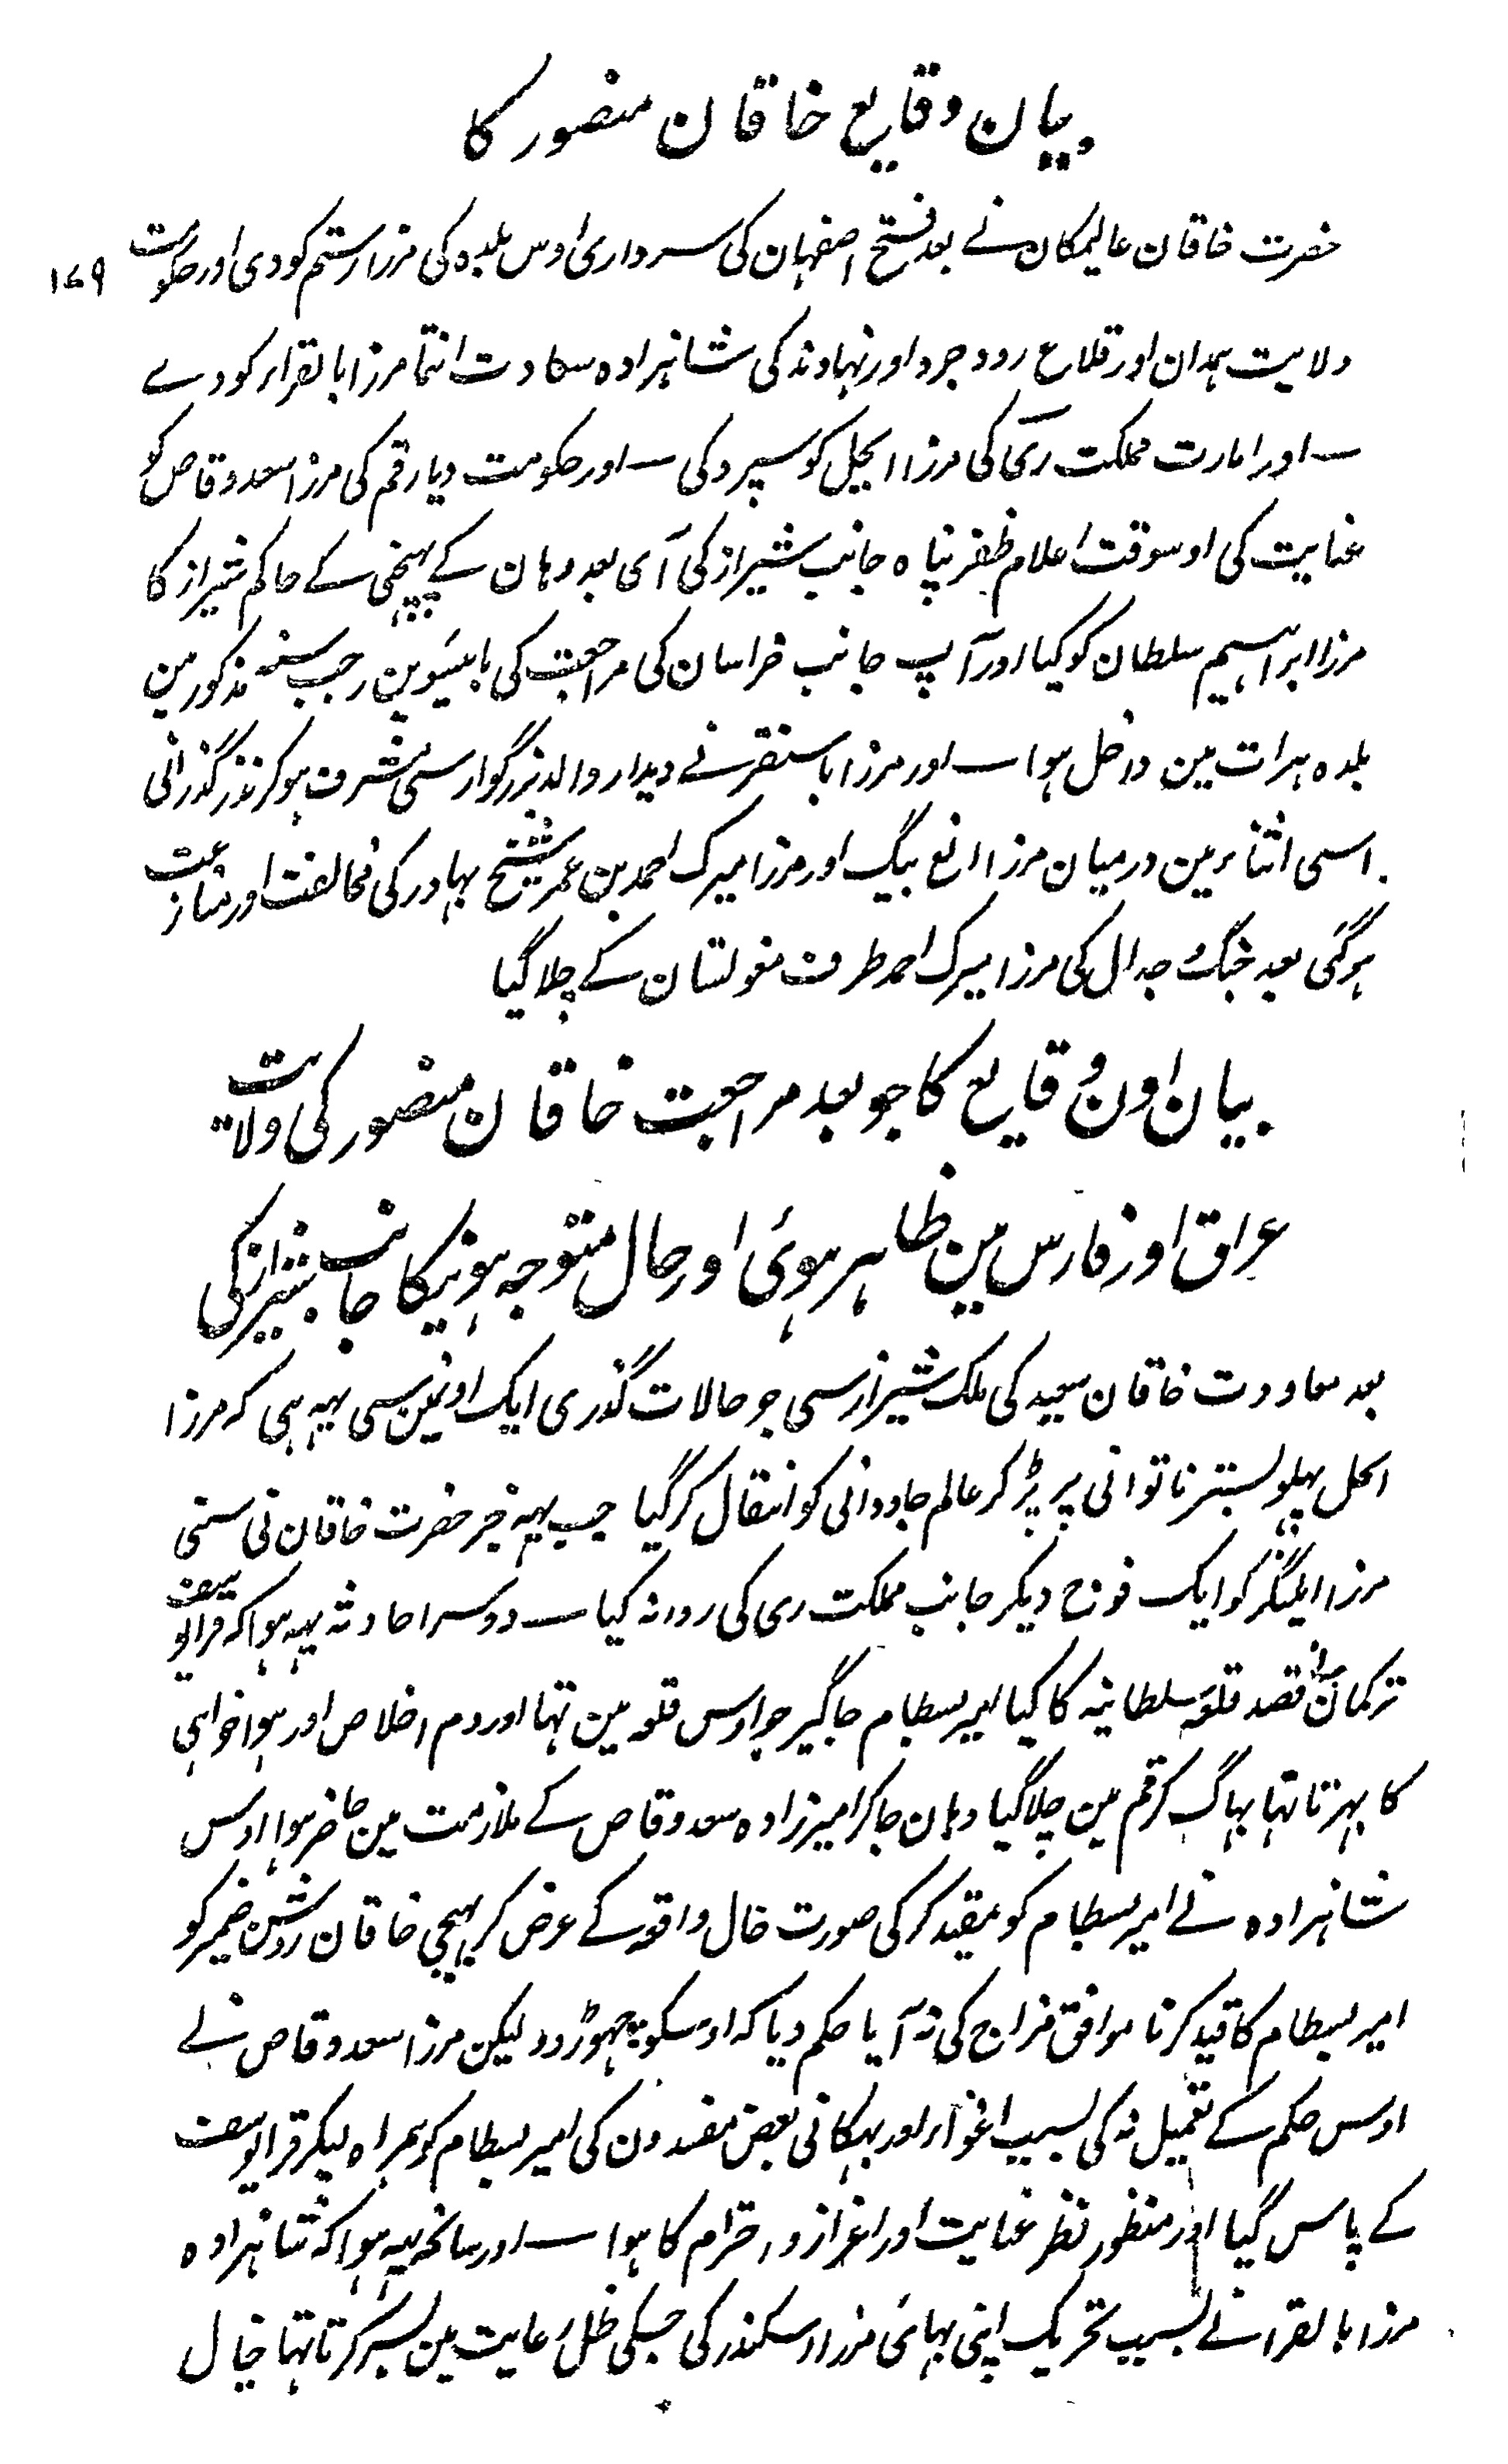 بیان وقایع خاقان منصور کا
حضرت خاقان عالیمکان نے بعد فتح اصفہان کی سرداری اوس بلدہ کی مرزا رستم کو دی اور حکومت
۱۷۹
ولایت ہمدان اور قلاع رود جرد اور نہاوند کی شاہزادہ سعادت انتما مرزا بایقراء کو دے
۔ اور امارت مملکت ری کی مرزا ایجل کو سپرد کی ۔ اور حکومت دیار قم کی مرزا سعد وقاص کو
عنایت کی اوسوقت اعلام ظفر پناہ جانب شیراز کی آی بعد وہان کے پہنچی کے حاکم شیراز کا
مرزا ابراہیم سلطان کو کیا اور آپ جانب خراسان کی مراجعت کی بائیسوین رجب سنہ مذکور مین
بلدہ ہرات مین داخل ہوا ۔ اور مرزا باسنقر نے دیدار والد بزرگوار سی مشرف ہوکر نذر گذرانی
اسی اثناء مین درمیان مرزا الغ بیگ اور مرزا میرک احمد بن عمر شیخ بہادر کی مخالفت اور منازعت
ہوگئی بعد جنگ جدال کی مرزا میرک احمد طرف مغولستان کے چلا گیا
بیان اون وقایع کا جو بعد مراجعت خاقان منصور کی ولایت
عراق اور فارس مین ظاہر ہوئی اور حال متوجہ ہونیکا جانب شیراز کی
بعد معاودت خاقان سعید کی ملک شیراز سی جو حالات گذری ایک اونین سی یہہ ہی کہ مرزا
ایجل پہلو بستر ناتوانی پر پڑ کر عالم جاودانی کو انتقال کر گیا جب یہہ خبر حضرت خاقان نی سنی
مرزا ایلنگر کو ایک فوج دیکر جانب مملکت ری کی روانہ کیا ۔ دوسرا حادثہ یہہ ہوا کہ قرا یوسف
ترکمان نے قصد قلعہ سلطانیہ کا کیا امیر بسطام جاگیر جو اوس قلعہ مین تہا اور دم اخلاص اور ہواخواہی
کا بہرتا تہا بہاگ کر قم مین چلا گیا وہان جاکر امیرزادہ سعد وقاص کے ملازمت مین حاضر ہوا اوس
شاہزادہ نے امیر بسطام کو مقید کر کی صورت حال واقعہ کے عرض کر بہیجی خاقان روشن ضمیر کو
امیر بسطام کا قید کرنا موافق مزاج کی نہ آیا حکم دیا کہ اوسکو چہوڑ دو لیکن مرزا سعد وقاص نے
اوس حکم کے تعمیل نہ کی بسبب اغواء اور بہکانی بعض مفسدون کی امیر بسطام کو ہمراہ لیکر قرا یوسف
کے پاس گیا اور منظور نظر عنایت اور اعزاز و احترام کا ہوا ۔ اور سانحہ یہہ ہوا کہ شاہزادہ
مرزا بایقرا نے بسبب تحریک اپنی بہائی مرزا اسکندر کی جسکی ظل رعایت مین بسر کرتا تہا خیال